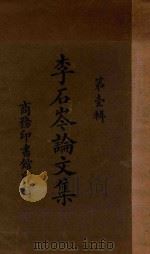 第壹輯
李石岑論文集
商務印書館